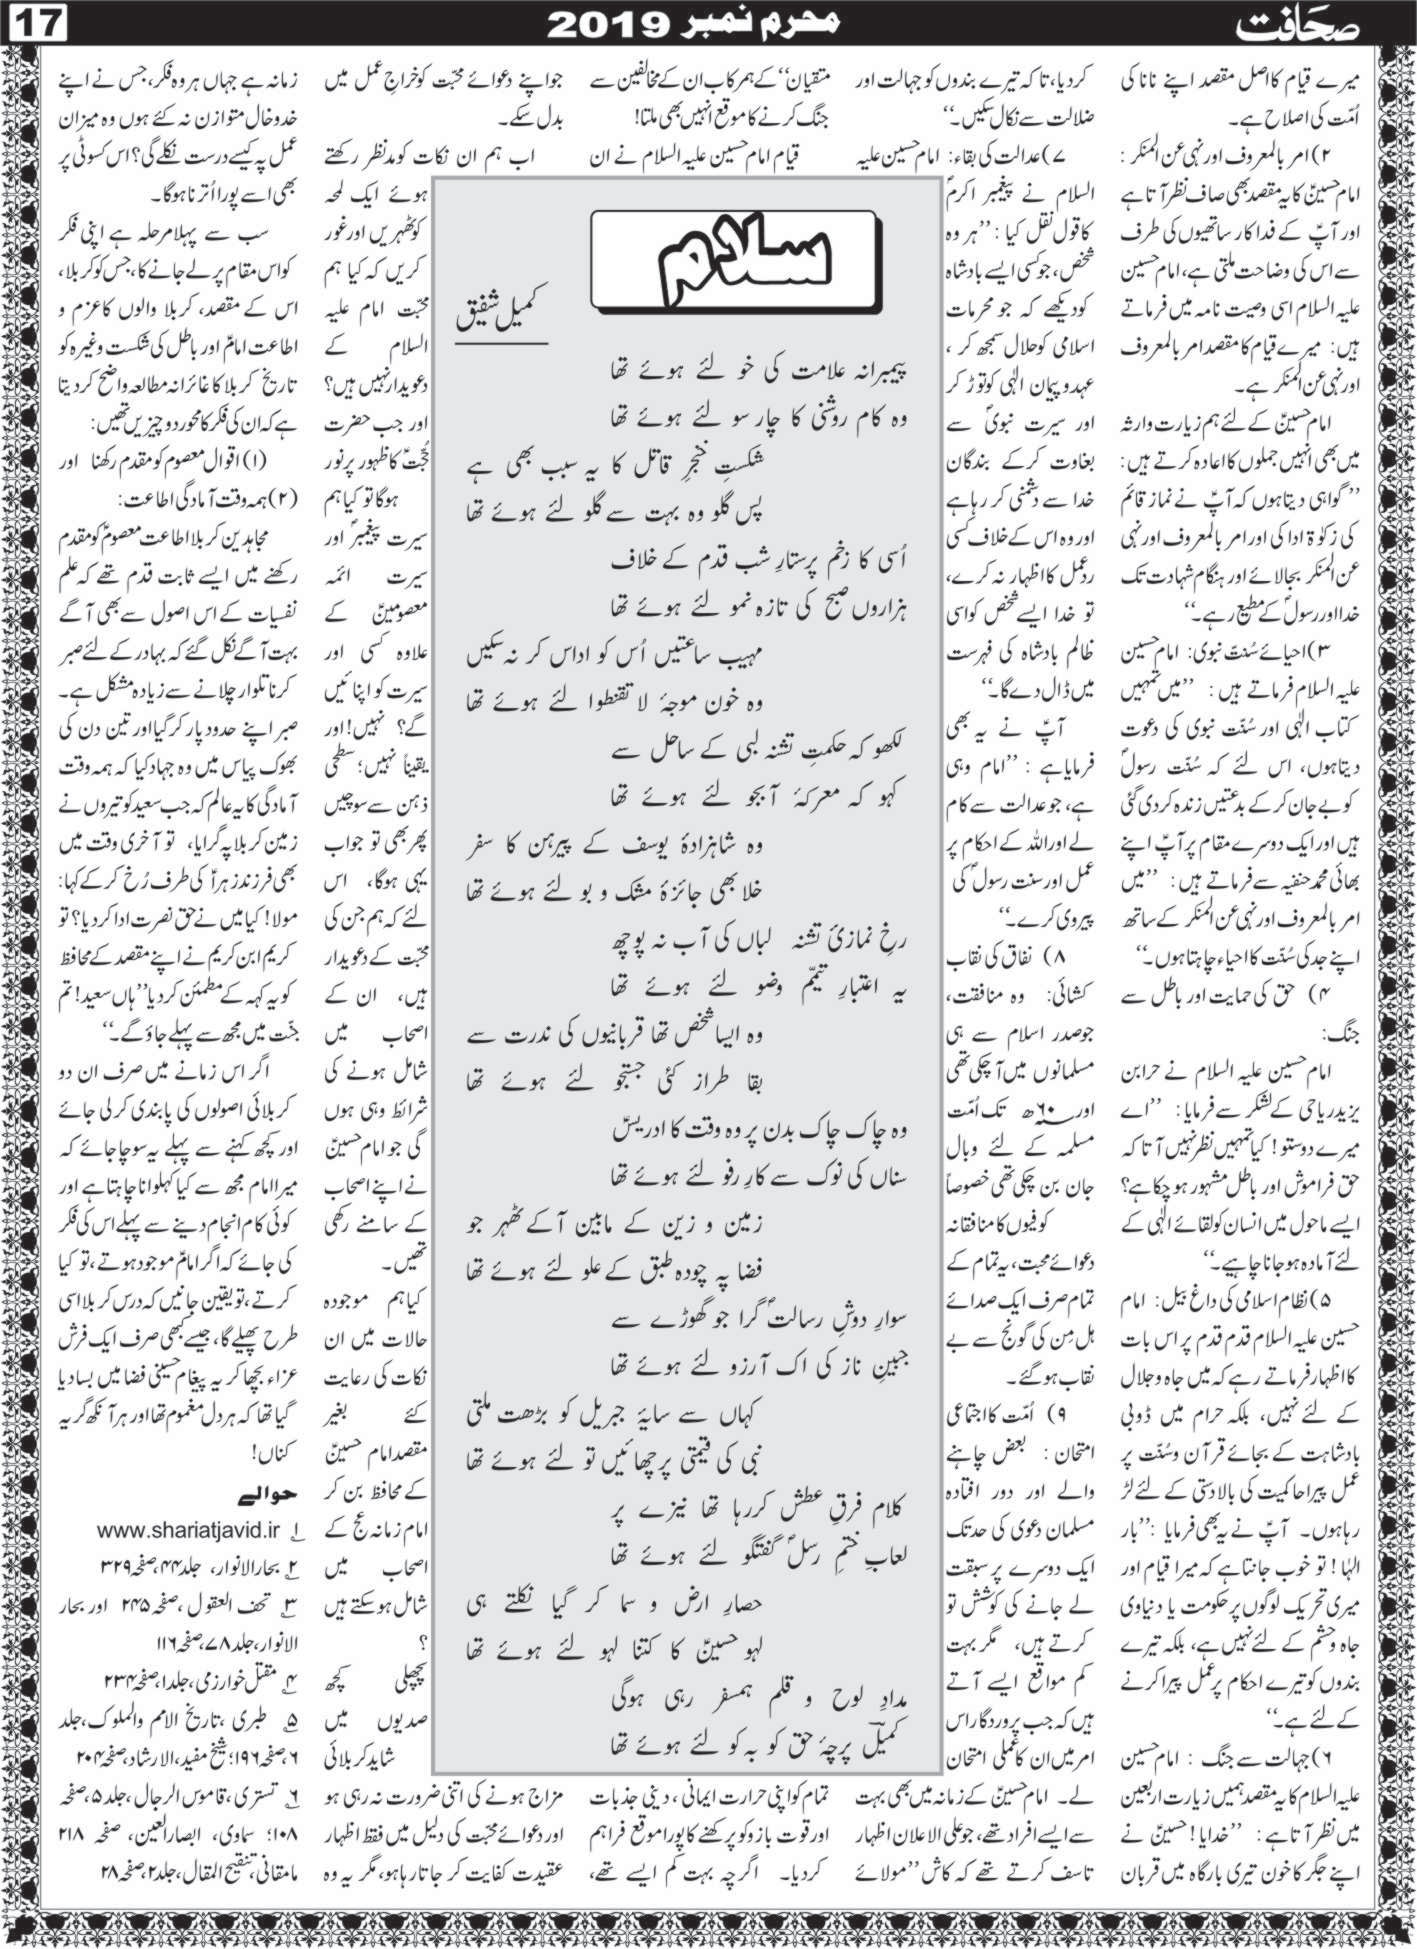 صحافت
محرم نمبر 2019
17
میرے قیام کا اصل مقصد اپنے نانا کی
اُمّت کی اصلاح ہے۔
۲) امر بالمعروف اور نہی عن المنکر :
امام حسینؑ کا یہ مقصد بھی صاف نظر آتا ہے
اور آپؑ کے فداکار ساتھیوں کی طرف
سے اس کی وضاحت ملتی ہے، امام حسین
علیہ السلام اسی وصیت نامہ میں فرماتے
ہیں: میرے قیام کا مقصد امر بالمعروف
اور نہی عن المنکر ہے۔
امام حسینؑ کے لئے ہم زیارت وارثہ
میں بھی انہیں جملوں کا اعادہ کرتے ہیں:
’’گواہی دیتا ہوں کہ آپؑ نے نماز قائم
کی زکوٰۃ ادا کی اور امر بالمعروف اور نہی
عن المنکر بجا لائے اور ہنگام شہادت تک
خدا اور رسولؐ کے مطیع رہے۔‘‘
۳) احیائے سُنتِ نبوی: امام حسین
علیہ السلام فرماتے ہیں: ’’میں تمہیں
کتاب الٰہی اور سُنّت نبوی کی دعوت
دیتا ہوں، اس لئے کہ سُنّت رسولؐ
کو بے جان کر کے بدعتیں زندہ کر دی گئی
ہیں اور ایک دوسرے مقام پر آپؑ اپنے
بھائی محمد حنفیہ سے فرماتے ہیں: ’’میں
امر بالمعروف اور نہی عن المنکر کے ساتھ
اپنے جد کی سُنّت کا احیاء چاہتا ہوں۔‘‘
۴) حق کی حمایت اور باطل سے
جنگ:
امام حسین علیہ السلام نے حر ابن
یزید ریاحی کے لشکر سے فرمایا: ’’اے
میرے دوستو! کیا تمہیں نظر نہیں آتا کہ
حق فراموش اور باطل مشہور ہو چکا ہے؟
ایسے ماحول میں انسان کو لقائے الٰہی کے
لئے آمادہ ہو جانا چاہیے۔‘‘
۵) نظام اسلامی کی داغ بیل: امام
حسین علیہ السلام قدم قدم پر اس بات
کا اظہار فرماتے رہے کہ میں جاہ و جلال
کے لئے نہیں، بلکہ حرام میں ڈوبی
بادشاہت کے بجائے قرآن و سُنّت پر
عمل پیرا حاکمیت کی بالادستی کے لئے لڑ
رہا ہوں۔ آپؑ نے یہ بھی فرمایا: ’’بار
الہٰا! تو خوب جانتا ہے کہ میرا قیام اور
میری تحریک لوگوں پر حکومت یا دنیاوی
جاہ و حشم کے لئے نہیں ہے، بلکہ تیرے
بندوں کو تیرے احکام پر عمل پیرا کرنے
کے لئے ہے۔‘‘
۶) جہالت سے جنگ : امام حسین
علیہ السلام کا یہ مقصد ہمیں زیارت اربعین
میں نظر آتا ہے: ’’خدایا! حسینؑ نے
اپنے جگر کا خون تیری بارگاہ میں قربان
کر دیا، تا کہ تیرے بندوں کو جہالت اور
ضلالت سے نکال سکیں۔‘‘
۷) عدالت کی بقاء: امام حسین علیہ
السلام نے پیغمبر اکرمؐ
کا قول نقل کیا: ’’ہر وہ
شخص، جو کسی ایسے بادشاہ
کو دیکھے کہ جو محرمات
اسلامی کو حلال سمجھ کر،
عہد و پیمان الٰہی کو توڑ کر
اور سیرت نبویؐ سے
بغاوت کر کے بندگان
خدا سے دشمنی کر رہا ہے
اور وہ اس کے خلاف کسی
ردعمل کا اظہار نہ کرے،
تو خدا ایسے شخص کو اسی
ظالم بادشاہ کی فہرست
میں ڈال دے گا۔‘‘
آپؑ نے یہ بھی
فرمایا ہے: ’’امام وہی
ہے، جو عدالت سے کام
لے اور اللہ کے احکام پر
عمل اور سنت رسولؐ کی
پیروی کرے۔‘‘
۸) نفاق کی نقاب
کشائی: وہ منافقت،
جو صدر اسلام سے ہی
مسلمانوں میں آ چکی تھی
اور ۶۰ھ تک اُمّت
مسلمہ کے لئے وبال
جان بن چکی تھی خصوصاً
کوفیوں کا منافقانہ
دعوائے محبت، یہ تمام کے
تمام صرف ایک صدائے
ہل مِن کی گونج سے بے
نقاب ہو گئے۔
۹) اُمّت کا اجتماعی
امتحان : بعض چاہنے
والے اور دور افتادہ
مسلمان دعویٰ کی حد تک
ایک دوسرے پر سبقت
لے جانے کی کوشش تو
کرتے ہیں، مگر بہت
کم مواقع ایسے آتے
ہیں کہ جب پروردگار اس
امر میں ان کا عملی امتحان
لے۔ امام حسینؑ کے زمانہ میں بھی بہت
سے ایسے افراد تھے، جو علی الاعلان اظہار
تاسف کرتے تھے کہ کاش ’’مولائے
متقیان‘‘ کے ہمرکاب ان کے مخالفین سے
جنگ کرنے کا موقع انہیں بھی ملتا!
قیام امام حسین علیہ السلام نے ان
سلام
کمیل شفیق
پیمبرانہ علامت کی خو لئے ہوئے تھا
وہ کام روشنی کا چار سو لئے ہوئے تھا
شکستِ خنجرِ قاتل کا یہ سبب بھی ہے
پس گلو وہ بہت سے گلو لئے ہوئے تھا
اُسی کا زخم پرستارِ شب قدم کے خلاف
ہزاروں صبح کی تازہ نمو لئے ہوئے تھا
مہیب ساعتیں اُس کو اداس کر نہ سکیں
وہ خون موجۂ لا تقنطوا لئے ہوئے تھا
لکھو کہ حکمتِ تشنہ لبی کے ساحل سے
کہو کہ معرکۂ آبجو لئے ہوئے تھا
وہ شاہزادۂ یوسف کے پیرہن کا سفر
خلا بھی جائزۂ مشک و بو لئے ہوئے تھا
رخِ نمازیٔ تشنہ لباں کی آب نہ پوچھ
یہ اعتبارِ تیمّم وضو لئے ہوئے تھا
وہ ایسا شخص تھا قربانیوں کی ندرت سے
بقا طراز کئی جستجو لئے ہوئے تھا
وہ چاک چاک بدن پر وہ وقت کا ادریسؑ
سناں کی نوک سے کارِ رفو لئے ہوئے تھا
زمین و زین کے مابین آ کے ٹھہر جو
فضا پہ چودہ طبق کے علو لئے ہوئے تھا
سوارِ دوشِ رسالتؐ گرا جو گھوڑے سے
جبینِ ناز کی اک آرزو لئے ہوئے تھا
کہاں سے سایۂ جبریل کو بڑھت ملتی
نبی کی قیمتی پرچھائیں تو لئے ہوئے تھا
کلام فرقِ عطش کر رہا تھا نیزے پر
لعابِ ختمِ رسلؐ گفتگو لئے ہوئے تھا
حصارِ ارض و سما کر گیا نکلتے ہی
لہو حسینؑ کا کتنا لہو لئے ہوئے تھا
مدادِ لوح و قلم ہمسفر رہی ہوگی
کمیلؔ پرچۂ حق کو بہ کو لئے ہوئے تھا
تمام کو اپنی حرارت ایمانی، دینی جذبات
اور قوت بازو کو پرکھنے کا پورا موقع فراہم
کر دیا۔ اگرچہ بہت کم ایسے تھے،
جو اپنے دعوائے محبّت کو خراجِ عمل میں
بدل سکے۔
اب ہم ان نکات کو مدنظر رکھتے
ہوئے ایک لمحہ
کو ٹھہریں اور غور
کریں کہ کیا ہم
محبّت امام علیہ
السلام کے
دعویدار نہیں ہیں؟
اور جب حضرت
حُجّتؑ کا ظہور پرنور
ہوگا تو کیا ہم
سیرت پیغمبرؐ اور
سیرت ائمہ
معصومینؑ کے
علاوہ کسی اور
سیرت کو اپنائیں
گے؟ نہیں! اور
یقیناً نہیں؛ سطحی
ذہن سے سوچیں
پھر بھی تو جواب
یہی ہوگا، اس
لئے کہ ہم جن کی
محبّت کے دعویدار
ہیں، ان کے
اصحاب میں
شامل ہونے کی
شرائط وہی ہوں
گی جو امام حسینؑ
نے اپنے اصحاب
کے سامنے رکھی
تھیں۔
کیا ہم موجودہ
حالات میں ان
نکات کی رعایت
کئے بغیر
مقصد امام حسینؑ
کے محافظ بن کر
امام زمانہ عج کے
اصحاب میں
شامل ہو سکتے ہیں
؟
پچھلی کچھ
صدیوں میں
شاید کربلائی
مزاج ہونے کی اتنی ضرورت نہ رہی ہو
اور دعوائے محبّت کی دلیل میں فقط اظہار
عقیدت کفایت کر جاتا رہا ہو، مگر یہ وہ
زمانہ ہے جہاں ہر وہ فکر، جس نے اپنے
خدوخال متوازن نہ کئے ہوں وہ میزان
عمل پہ کیسے درست نکلے گی؟ اس کسوٹی پر
بھی اسے پورا اُترنا ہوگا۔
سب سے پہلا مرحلہ ہے اپنی فکر
کو اس مقام پر لے جانے کا، جس کو کربلا،
اس کے مقصد، کربلا والوں کا عزم و
اطاعت امامؑ اور باطل کی شکست وغیرہ کو
تاریخ کربلا کا غائرانہ مطالعہ واضح کر دیتا
ہے کہ ان کی فکر کا محور دو چیزیں تھیں:
(۱) اقوال معصوم کو مقدم رکھنا اور
(۲) ہمہ وقت آمادگی اطاعت:
مجاہدین کربلا اطاعت معصومؑ کو مقدم
رکھنے میں ایسے ثابت قدم تھے کہ علم
نفسیات کے اس اصول سے بھی آگے
بہت آگے نکل گئے کہ بہادر کے لئے صبر
کرنا تلوار چلانے سے زیادہ مشکل ہے۔
صبر اپنے حدود پار کر گیا اور تین دن کی
بھوک پیاس میں وہ جہاد کیا کہ ہمہ وقت
آمادگی کا یہ عالم کہ جب سعید کو تیروں نے
زمین کربلا پہ گرایا، تو آخری وقت میں
بھی فرزند زہراؑ کی طرف رُخ کر کے کہا:
مولا! کیا میں نے حق نصرت ادا کر دیا؟ تو
کریم ابن کریم نے اپنے مقصد کے محافظ
کو یہ کہہ کے مطمئن کر دیا ’’ہاں سعید! تم
جنّت میں مجھ سے پہلے جاؤ گے۔‘‘
اگر اس زمانے میں صرف ان دو
کربلائی اصولوں کی پابندی کر لی جائے
اور کچھ کہنے سے پہلے یہ سوچا جائے کہ
میرا امام مجھ سے کیا کہلوانا چاہتا ہے اور
کوئی کام انجام دینے سے پہلے اس کی فکر
کی جائے کہ اگر امامؑ موجود ہوتے، تو کیا
کرتے، تو یقین جانیں کہ درس کربلا اسی
طرح پھیلے گا، جیسے کبھی صرف ایک فرش
عزاء بچھا کر یہ پیغام حسینی فضا میں بسا دیا
گیا تھا کہ ہر دل مغموم تھا اور ہر آنکھ گریہ
کناں!
حوالے
۱؎ www.shariatjavid.ir
۲؎ بحارالانوار، جلد ۴۴، صفحہ ۳۲۹
۳؎ تحف العقول، صفحہ ۲۴۵ اور بحار
الانوار، جلد ۷۸، صفحہ ۱۱۶
۴؎ مقتل خوارزمی، جلد ۱، صفحہ ۲۳۴
۵؎ طبری، تاریخ الامم والملوک، جلد
۶، صفحہ ۱۹۶؛ شیخ مفید، الارشاد، صفحہ ۲۰۴
۶؎ تستری، قاموس الرجال، جلد ۵، صفحہ
۱۰۸؛ سماوی، ابصارالعین، صفحہ ۲۱۸
مامقانی، تنقیح المقال، جلد ۲، صفحہ ۲۸